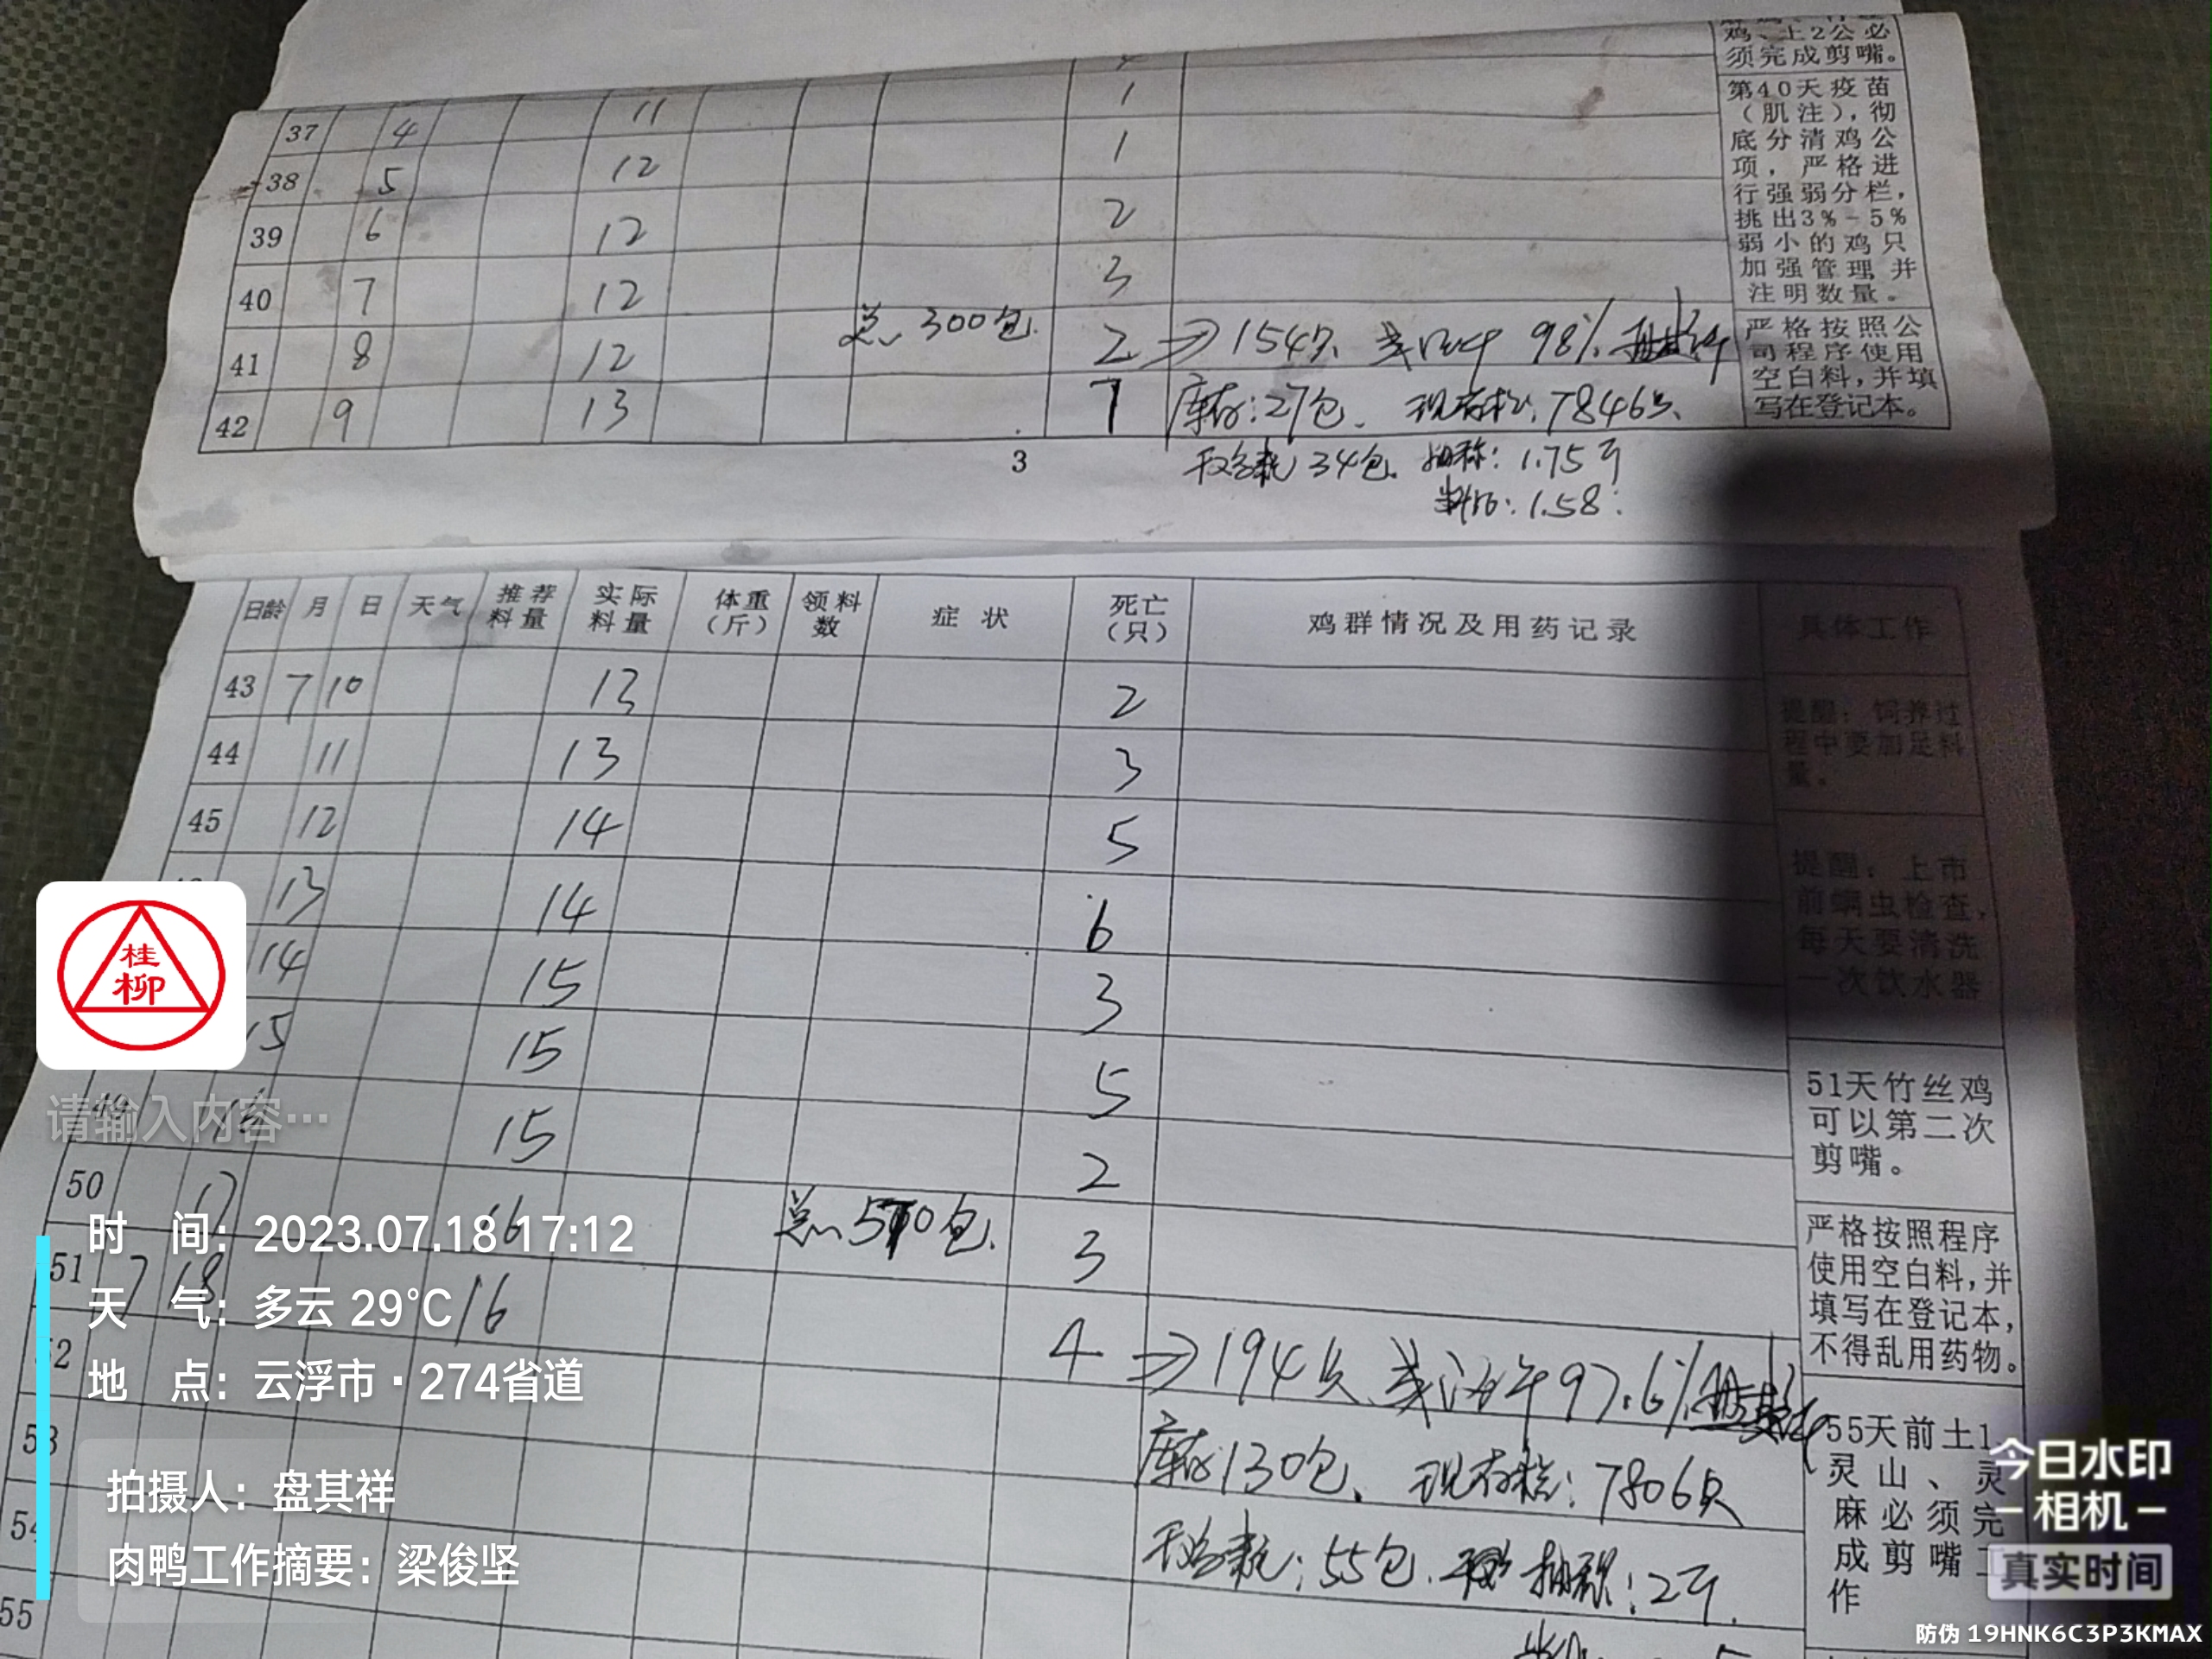 鸡、土2公必
须完成剪嘴。
37 4 11 1
第40天疫苗
（肌注），彻
底分清鸡公
项，严格进
行强弱分栏，
挑出3%-5%
弱小的鸡只
加强管理并
注明数量。
38 5 12 1
39 6 12 2
40 7 12 3
41 8 12 总 300包. 2 ⇒154只. 成活率 98%.
严格按照公
司程序使用
空白料，并填
写在登记本。
42 9 13 1 库存:27包. 现存栏:7846只.
3
34包. 抽称: 1.75斤
料比: 1.58:
日龄 月 日 天气 推荐料量 实际料量 体重（斤） 领料数 症状 死亡（只） 鸡群情况及用药记录 具体工作
43 7 10 13 2
提醒：饲养过
程中要加足料
量。
44 11 13 3
45 12 14 5
提醒：上市
前螨虫检查，
每天要清洗
一次饮水器
13 14 6
14 15 3
15 15 5
51天竹丝鸡
可以第二次
剪嘴。
49 16 15 2
50 17 16 总 510包. 3
严格按照程序
使用空白料，并
填写在登记本，
不得乱用药物。
51 7 18 16 4 ⇒194只. 成活率97.6%.
52
53 库存130包. 现存栏: 7806只
55天前土1、
灵山、灵
麻必须完
成剪嘴工
作
54 55包. 抽称: 2斤.
55
桂
柳
请输入内容…
时 间：2023.07.18 17:12
天 气：多云 29℃
地 点：云浮市·274省道
拍摄人：盘其祥
肉鸭工作摘要：梁俊坚
今日水印
-相机-
真实时间
防伪 19HNK6C3P3KMAX